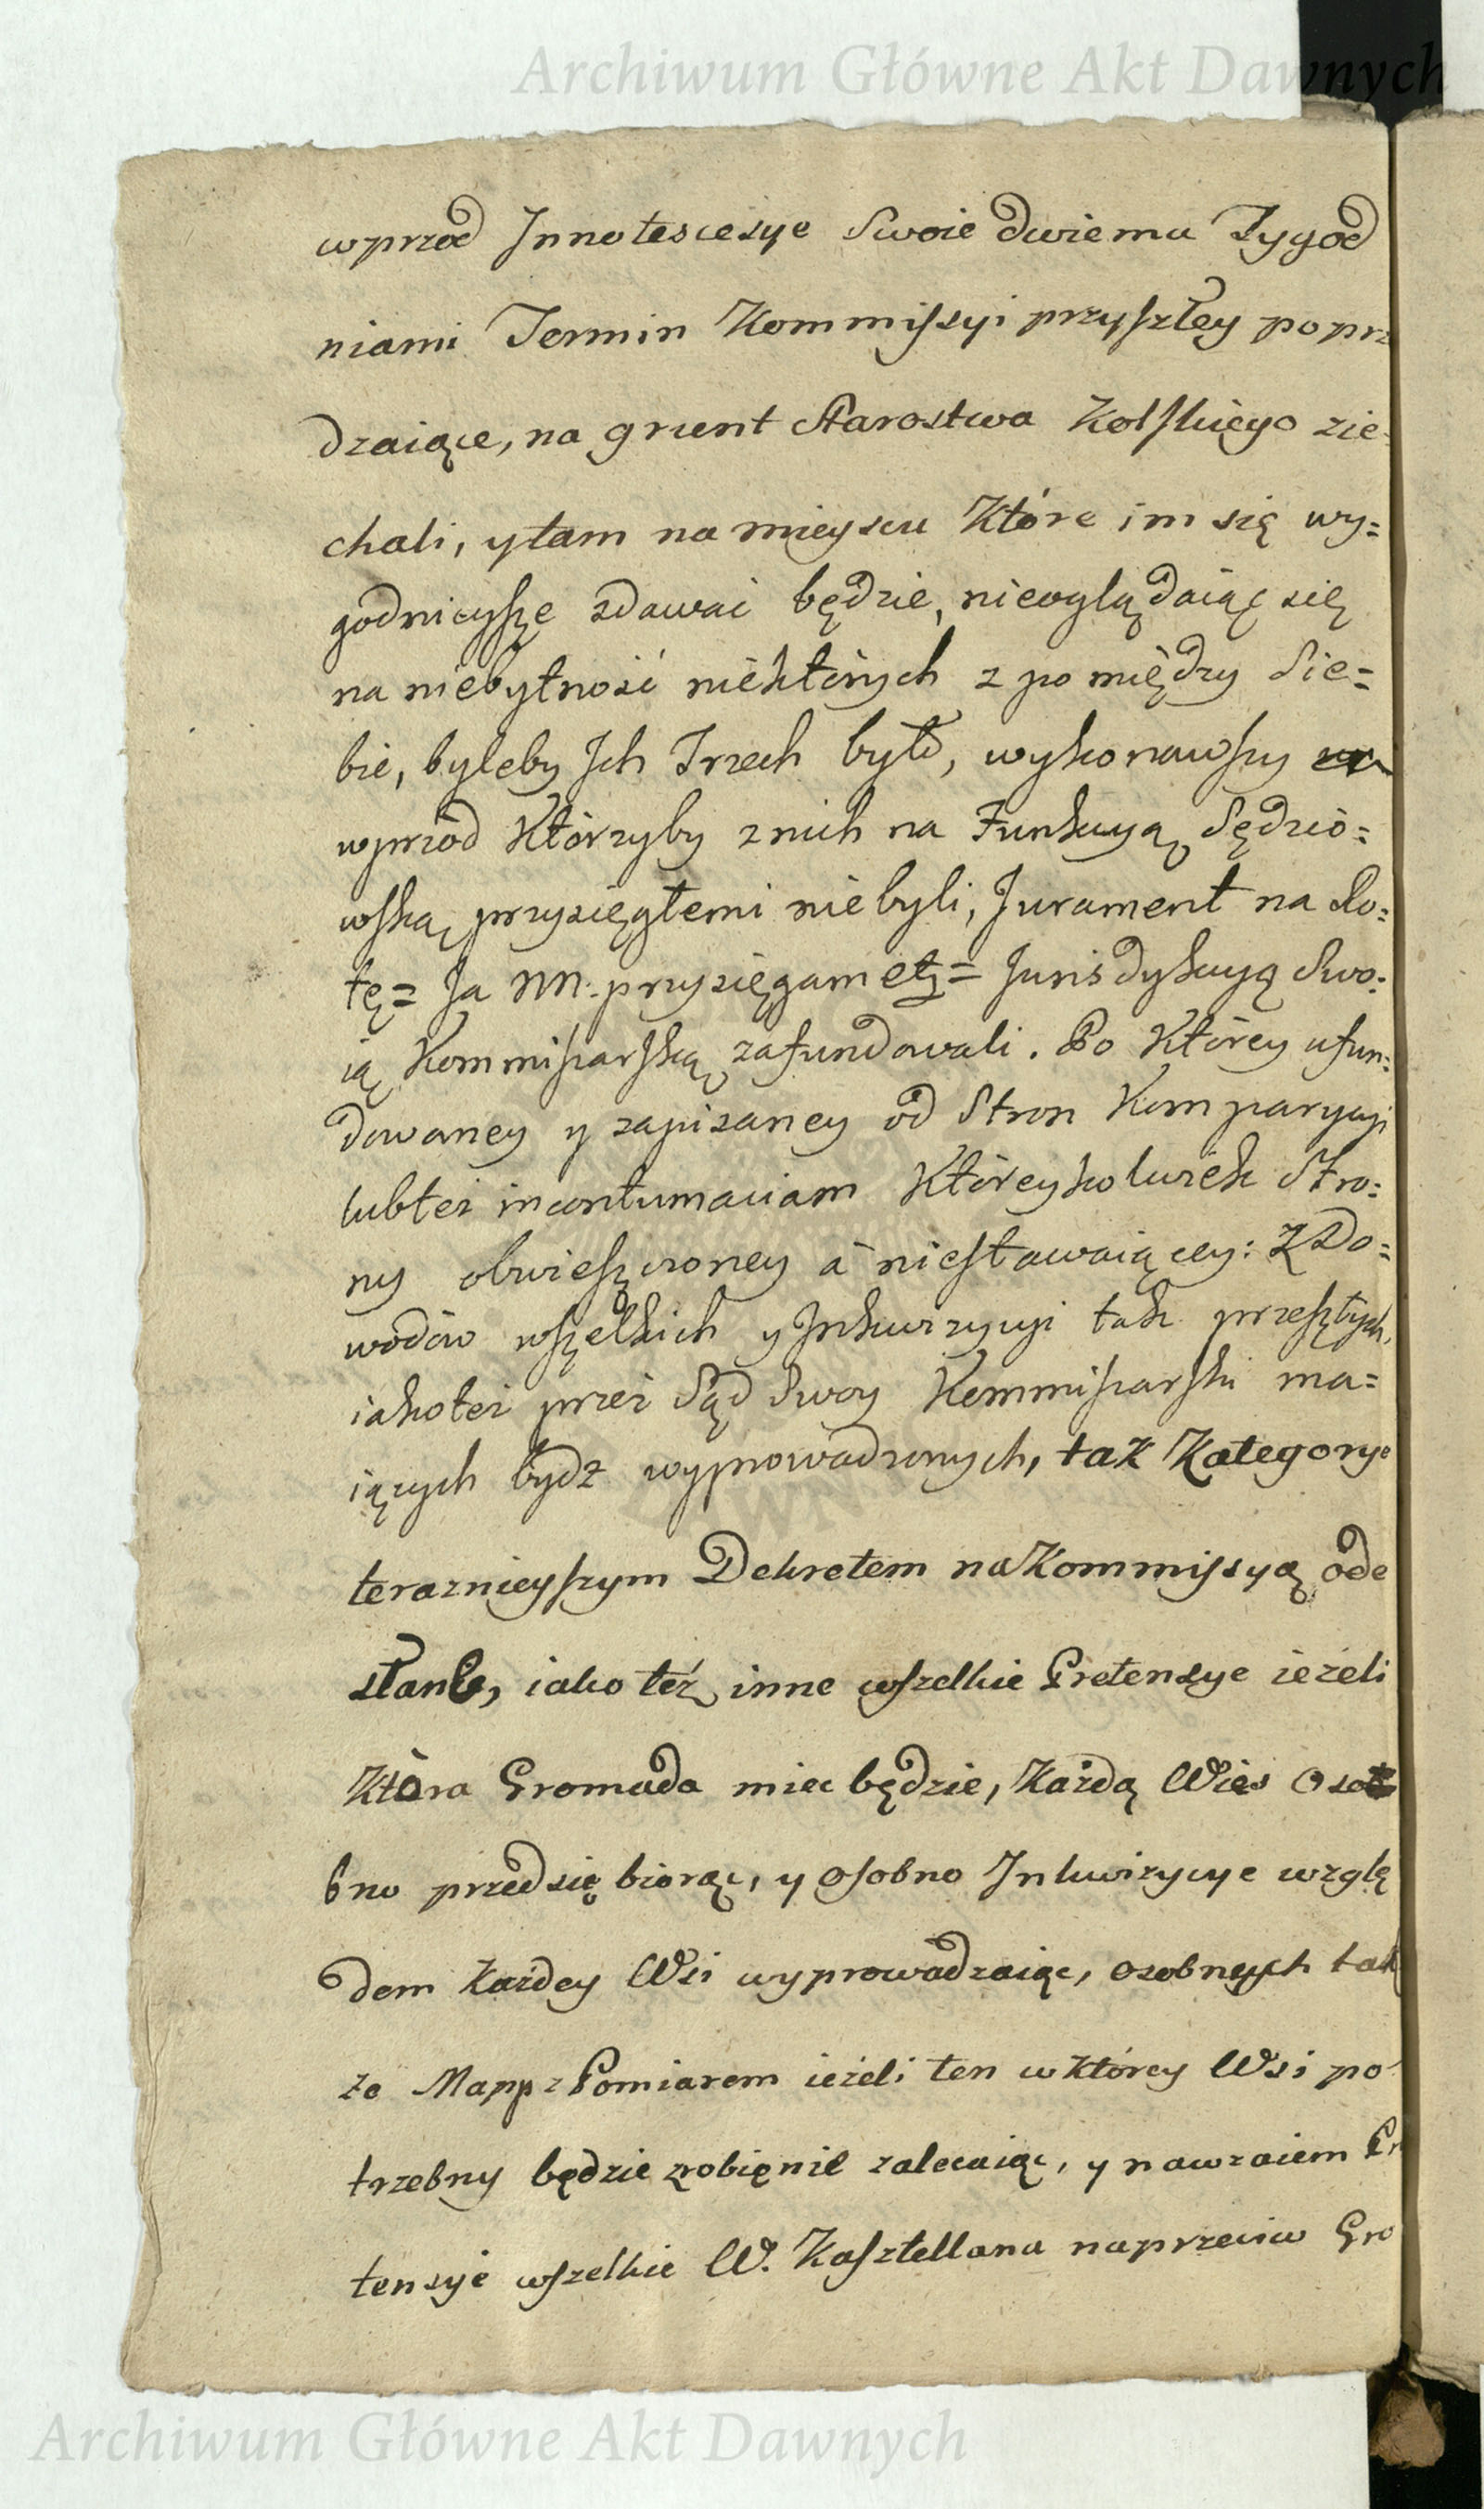 Archiwum Główne Akt Dawnych
wprzod Innotescesye Swoie dwiema Tygod
niami Termin Kommissyi przyszłey poprz
dzaiące, na grunt Starostwa Kolskiego zie
chali, y tam na mieyscu Które im się wy=
godnieysze zdawać będzie, nieoglądaiąc się
na niebytność niektórych z pomiędzy Sie=
bie, byleby Ich Trzech było, wykonawszy
wprzód Którzyby z nich na Funkcyą Sędzio=
wską przysięgłemi niebyli, Jurament na Ro=
tę= Ja NN: przysięgam etz= Jurisdykcyą Swo=
ią Kommisarską zafundowali. Po Którey ufun=
dowaney y zapisaney od Stron Komparycyi
lubteż in contumaciam Któreykolwiek Stro=
ny obwieszczoney a niestawaiącey: Z Do=
wodów wszelkich y Inkwizycyi tak przeszłych,
iakoteż przez Sąd Swoy Kommisarski ma=
iących bydz wyprowadzonych, tak Kategorye
teraznieyszym Dekretem na Kommissyą ode
słane, iako też inne wszelkie Pretensye ieżeli
Która Gromada miec będzie, Każdą Wies Oso
bno przedsię biorąc, y osobno Inkwizycye wzglę
dem Każdey Wsi wyprowadzaiąc, osobnych tak
że Mapp z Pomiarem ieżeli ten w Którey Wsi po
trzebny będzie zrobienie zalecaiąc, y nawzaiem Pr
tensye wszelkie W. Kasztellana naprzeciw Gro
Archiwum Główne Akt Dawnych